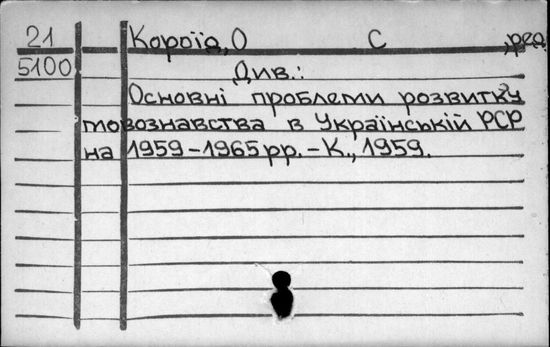 21 Короїд, О С , ред.
5100 Див.:
Основні проблеми розвитку
мовознавства в Українській РСР
на 1959-1965 рр. - К., 1959.